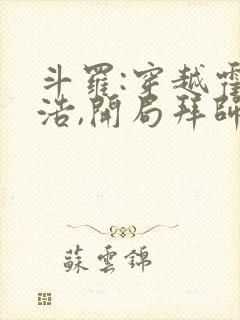 斗羅:穿越霍
浩,開局拜師
蘇雲錦